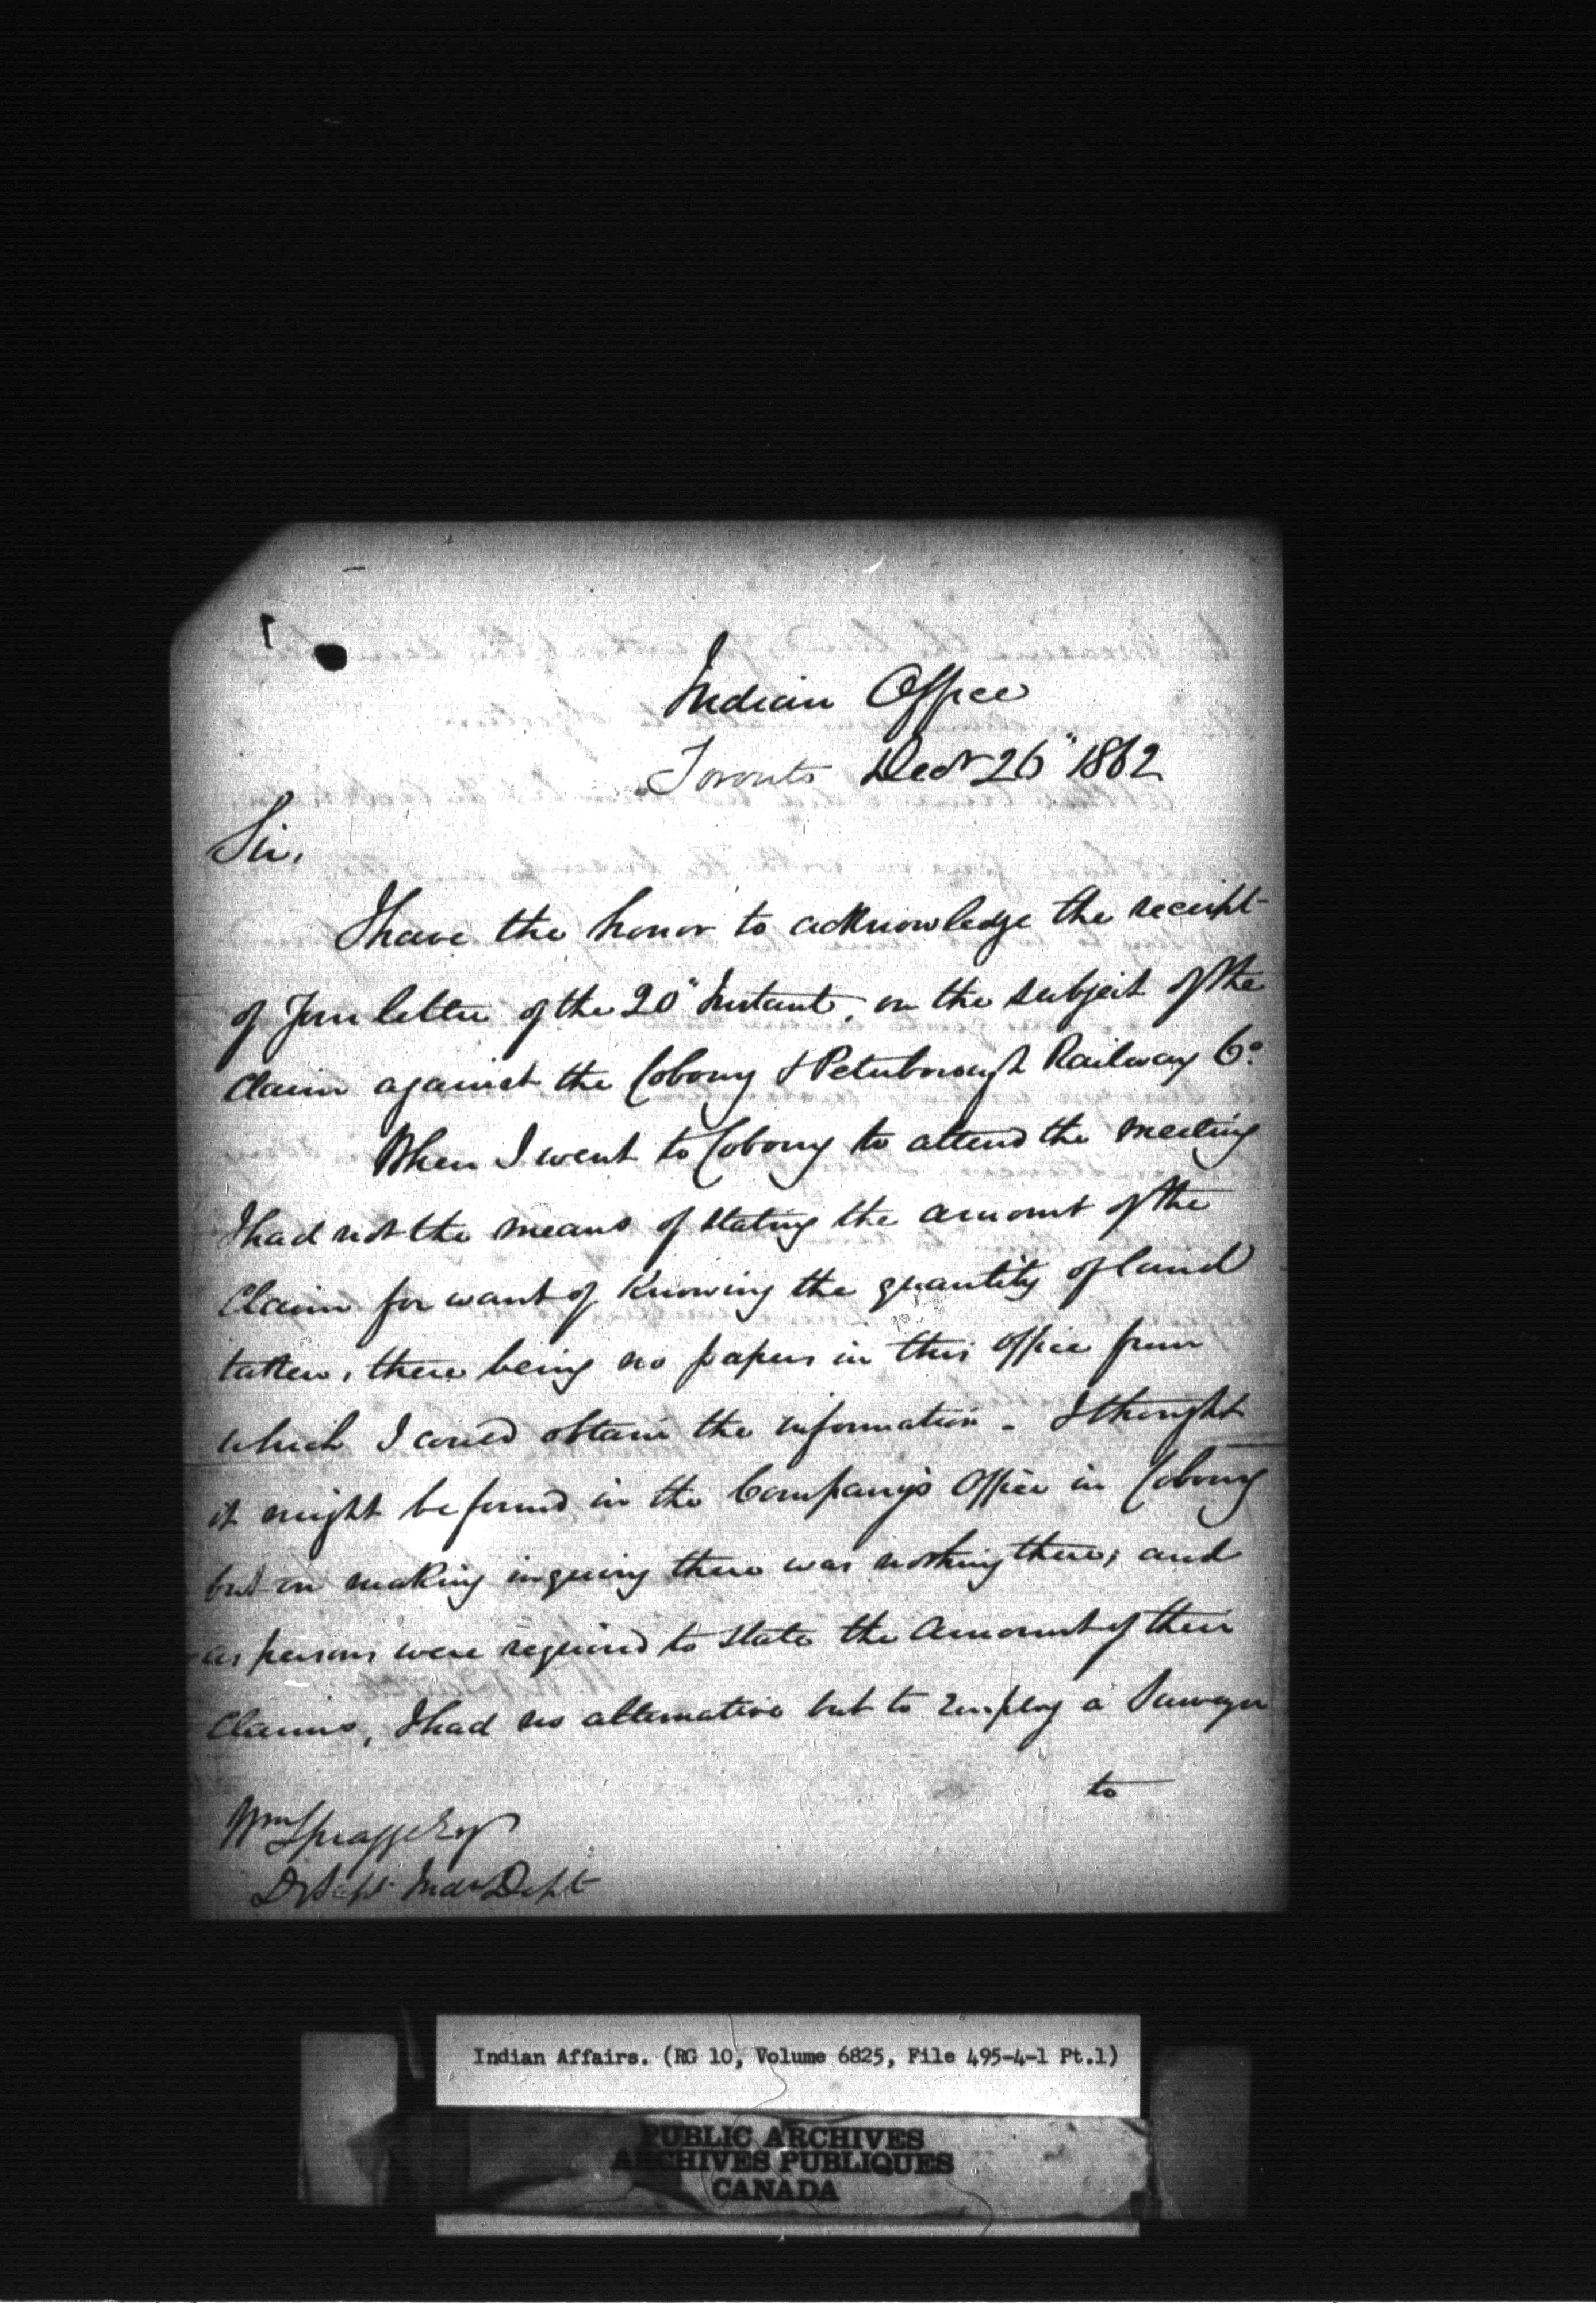 Indian Office
Toronto Decr 26" 1862
Sir,
I have the honor to acknowledge the receipt
of your letter of the 20" Instant, on the subject of the
Claim against the Cobourg & Peterborough Railway Co.
When I went to Cobourg to attend the meeting
I had not the means of stating the amount of the
Claim for want of knowing the quantity of land
taken, there being no papers in this office from
which I could obtain the information - I thought
it might be found in the Company's Office in Cobourg
but on making inquiry there was nothing there; and
as persons were required to state the amount of their
Claims, I had no alternative but to employ a Surveyor
to
Wm Spragge Esqr
Dy Supt Indn Dept
Indian Affairs. (RG 10, Volume 6825, File 495-4-1 Pt.1)
PUBLIC ARCHIVES
ARCHIVES PUBLIQUES
CANADA